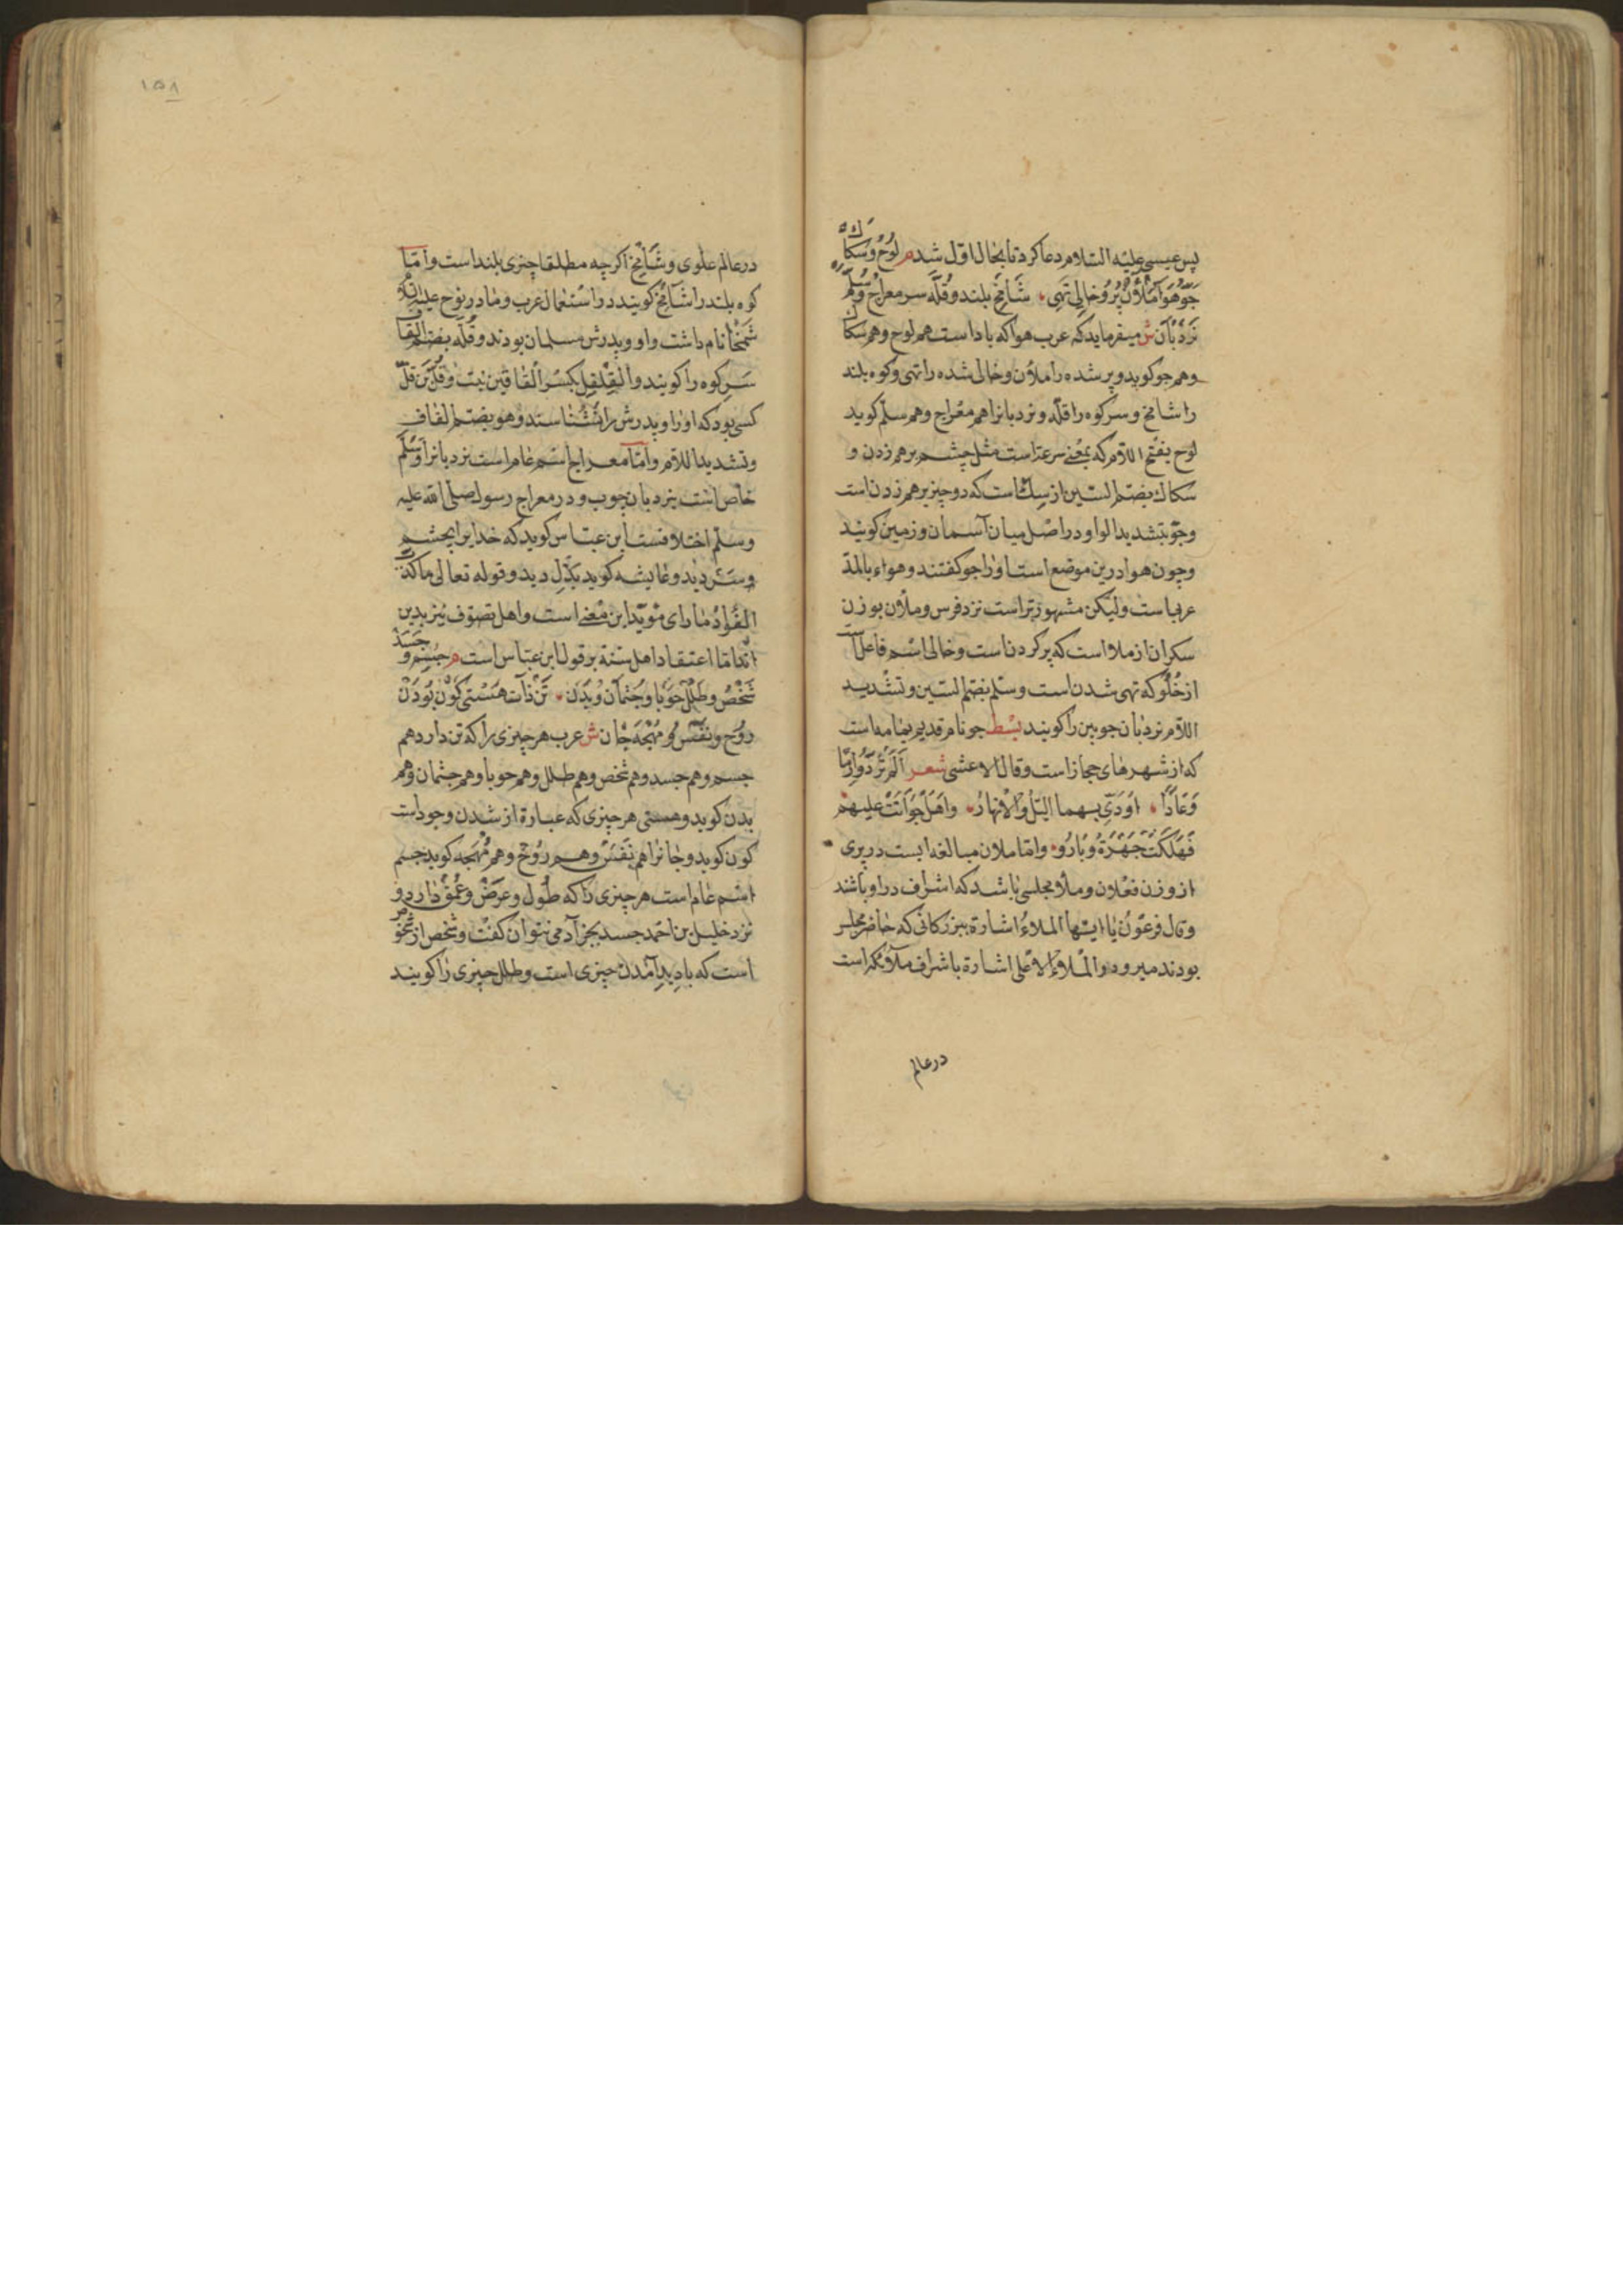 پس عیسی علیه السلام دعا کرد تا بحال اوّل شد م لُوحْ وُ سُکاکْ
جَوّ هَوا مَلْأنْ پُرُ و خالِی تَهِی شامِخ بلند و قُلّه سر معراج و سُلَّم
نَرْدْبانْ ش میفرماید که عرب هوا که باد است هم لوح و هم سکاک
و هم جو کوید و پر شده را ملأن و خالی شده را تهی و کوه بلند
را شامخ و سر کوه را قلّه و نردبانرا هم معراج و هم سلّم کوید
لوح بفتح اللام که بمعنی سرعتست مثل چشم برهم زدن و
سکاک بضم السین از سک است که دو چیز برهم زدن است
و جوّ بتشدید الواو در اصل میان آسمان و زمین کویند
و چون هوا درین موضع است او را جو کفتند و هواء بالمد
عربیاست ولیکن مشهورتر است نزد فرس و ملأن بوزن
سکران از ملا است که پر کردن است و خالی اسم فاعل است
از خُلُو که تهی شدن است و سلم بضم السین و تشدید
اللام نردبان چوبین را کویند بسط جو نام قدیم یمامه است
که از شهرهای حجاز است و قال الاعشی شعر اَلَمْ تَرَوْا اِرَمًا
وَعَادًا اَوْدَی بهما اللیل والنهارُ واهل جو اتت علیهم
فَهَلَکَتْ جَهْرَةً وَبَارُو و اما ملان مبالغه ایست در پری
از وزن فعلان و ملأ مجلسی باشد که اشراف در او باشند
و قال فرعون یا ایها الملاءُ اشارة ببزرکانی که حاضر مجلس
بودند میرود و الملاء الاعلی اشارة باشراف ملآئکه است
در عالم
۱۵۸
در عالم علوی و شامِخ اکرچه مطلقا چیزی بلند است و امّا
کوه بلند را شامخ کویند در استعمال عرب و مادر نوح علیه السلام
شَمْخا نام داشت و او و پدرش مسلمان بودند و قُلّه بضم القاف
سَرِ کوه را کویند و القِلْقِل بکسر القافین نبت و قُلّ بن قُلّ
کسی بود که او را و پدرش را نشناسند و هو بضم القاف
و تشدید اللام و امّا معراج اسم عام است نردبانرا و سُلَّم
خاص است بنردبان چوب و در معراج رسول صلی الله علیه
وسلّم اختلافست ابن عبّاس کوید که خدایرا بچشم
سر دید و عایشه کوید بدل دید و قوله تعالی ما کذب
الفُؤادُ ما رای مؤیّد این معنی است و اهل تصوّف نیز بدین
اند اما اعتقاد اهل سنة بر قول ابن عبّاس است م جِسْم و جَسَدْ
شَخْصْ و طَلَلْ حَوْبا و جُثْمانْ و بَدَنْ تَنْ ذات هَسْتی کَوْنْ بُودَنْ
رُوح و نَفْسْ و مُهْجَه جانْ ش عرب هر چیزی را که تن دارد هم
جسم و هم جسد و هم شخص و هم طلل و هم حوبا و هم جثمان و هم
بدن کوید و هستی هر چیزی که عبارة از شدن وجود است
کون کوید و جانرا هم نَفَس و هم رُوح و هم مُهجه کوید جسم
اسم عام است هر چیزی را که طُول و عَرْض و عُمق دارد و
نزد خلیل بن احمد جسد بجز آدمی نتوان کفت و شخص از شخوص
است که بادید آمدن چیزی است و طلل چیزی را کویند